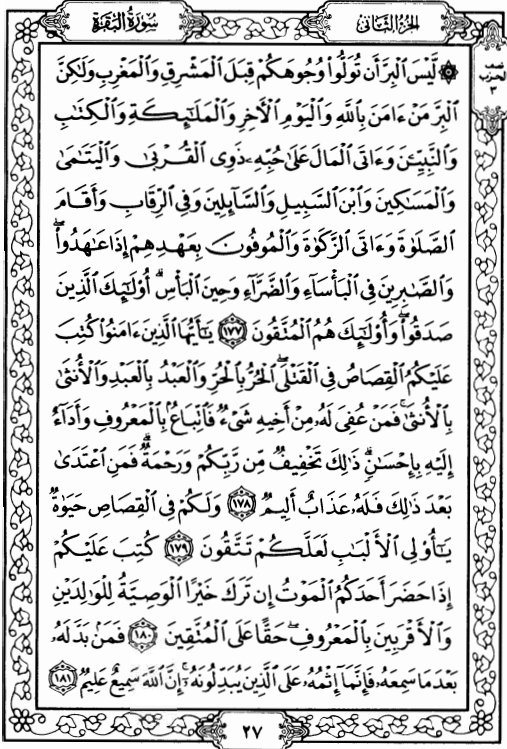 سُورَةُ البَقَرَةِ
الجُزْءُ الثَّانِي
نصف
الحزب
٣
۞ لَّيْسَ ٱلْبِرَّ أَن تُوَلُّوا۟ وُجُوهَكُمْ قِبَلَ ٱلْمَشْرِقِ وَٱلْمَغْرِبِ وَلَٰكِنَّ
ٱلْبِرَّ مَنْ ءَامَنَ بِٱللَّهِ وَٱلْيَوْمِ ٱلْأَخِرِ وَٱلْمَلَٰٓئِكَةِ وَٱلْكِتَٰبِ
وَٱلنَّبِيِّۦنَ وَءَاتَى ٱلْمَالَ عَلَىٰ حُبِّهِۦ ذَوِى ٱلْقُرْبَىٰ وَٱلْيَتَٰمَىٰ
وَٱلْمَسَٰكِينَ وَٱبْنَ ٱلسَّبِيلِ وَٱلسَّآئِلِينَ وَفِى ٱلرِّقَابِ وَأَقَامَ
ٱلصَّلَوٰةَ وَءَاتَى ٱلزَّكَوٰةَ وَٱلْمُوفُونَ بِعَهْدِهِمْ إِذَا عَٰهَدُوا۟ۖ
وَٱلصَّٰبِرِينَ فِى ٱلْبَأْسَآءِ وَٱلضَّرَّآءِ وَحِينَ ٱلْبَأْسِۗ أُو۟لَٰٓئِكَ ٱلَّذِينَ
صَدَقُوا۟ۖ وَأُو۟لَٰٓئِكَ هُمُ ٱلْمُتَّقُونَ ١٧٧ يَٰٓأَيُّهَا ٱلَّذِينَ ءَامَنُوا۟ كُتِبَ
عَلَيْكُمُ ٱلْقِصَاصُ فِى ٱلْقَتْلَىۖ ٱلْحُرُّ بِٱلْحُرِّ وَٱلْعَبْدُ بِٱلْعَبْدِ وَٱلْأُنثَىٰ
بِٱلْأُنثَىٰۚ فَمَنْ عُفِىَ لَهُۥ مِنْ أَخِيهِ شَىْءٌ فَٱتِّبَاعٌۢ بِٱلْمَعْرُوفِ وَأَدَآءٌ
إِلَيْهِ بِإِحْسَٰنٍۗ ذَٰلِكَ تَخْفِيفٌ مِّن رَّبِّكُمْ وَرَحْمَةٌۗ فَمَنِ ٱعْتَدَىٰ
بَعْدَ ذَٰلِكَ فَلَهُۥ عَذَابٌ أَلِيمٌ ١٧٨ وَلَكُمْ فِى ٱلْقِصَاصِ حَيَوٰةٌ
يَٰٓأُو۟لِى ٱلْأَلْبَٰبِ لَعَلَّكُمْ تَتَّقُونَ ١٧٩ كُتِبَ عَلَيْكُمْ
إِذَا حَضَرَ أَحَدَكُمُ ٱلْمَوْتُ إِن تَرَكَ خَيْرًا ٱلْوَصِيَّةُ لِلْوَٰلِدَيْنِ
وَٱلْأَقْرَبِينَ بِٱلْمَعْرُوفِۖ حَقًّا عَلَى ٱلْمُتَّقِينَ ١٨٠ فَمَنۢ بَدَّلَهُۥ
بَعْدَ مَا سَمِعَهُۥ فَإِنَّمَآ إِثْمُهُۥ عَلَى ٱلَّذِينَ يُبَدِّلُونَهُۥٓۚ إِنَّ ٱللَّهَ سَمِيعٌ عَلِيمٌ ١٨١
٢٧